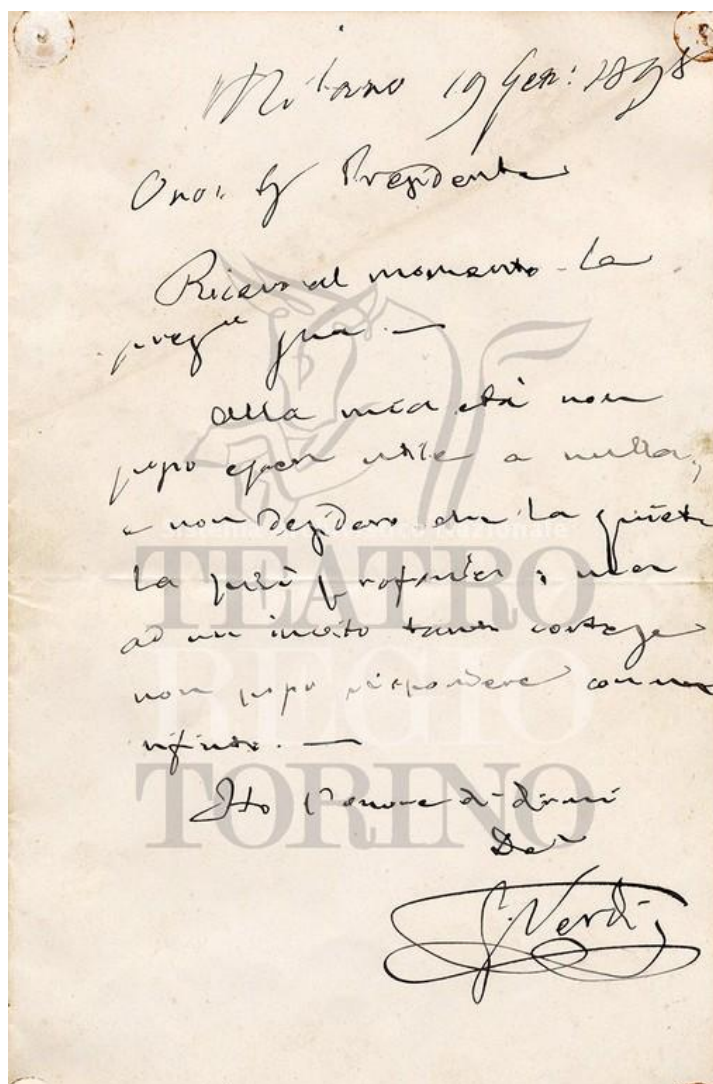 Milano 19 Gen: 1898
Onor: Sig Presidente
Ricevo al momento la
preg.a sua. —
Alla mia età non
posso esser utile a nulla,
e non desidero che la quiete
la più profonda; ma
ad un invito tanto cortese
non posso rispondere con un
rifiuto. —
Ho l'onore di dirmi
Dev
G. Verdi
nazionale
TEATRO
REGIO
TORINO